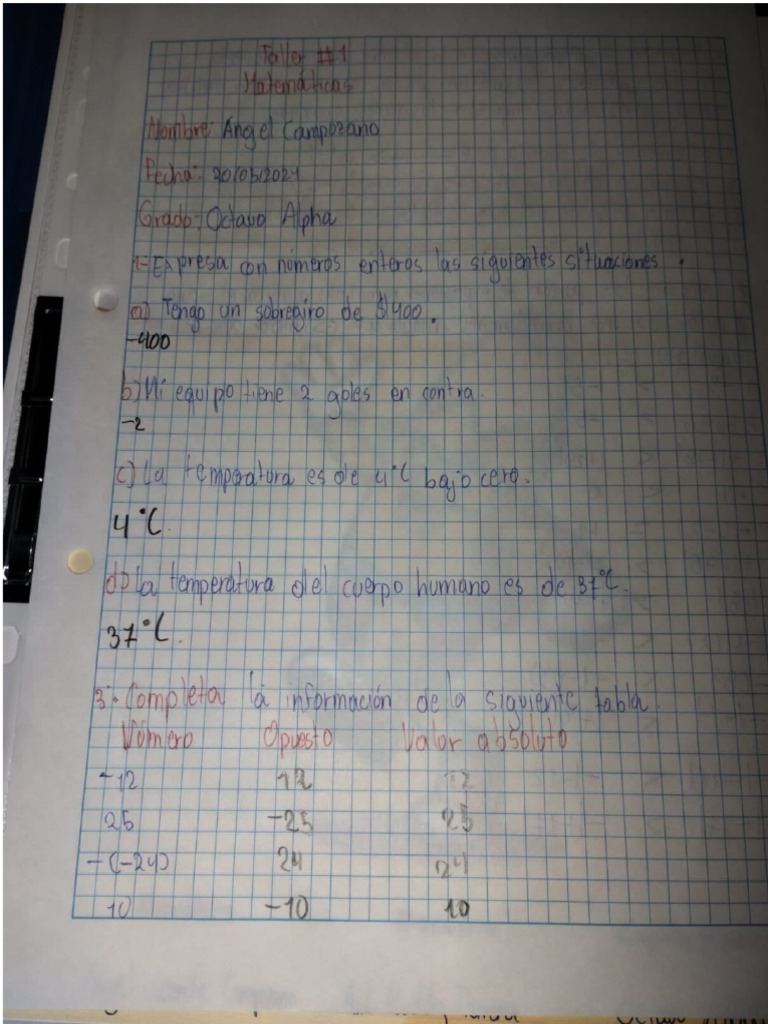 Taller #1
Matemáticas
Nombre: Angel Campozano
Fecha: 20/05/2021
Grado: Octavo Alpha
1- Expresa con números enteros las siguientes situaciones.
a) Tengo un sobregiro de $400.
-400
b) Mi equipo tiene 2 goles en contra.
-2
c) La temperatura es de 4°C bajo cero.
4°C.
d) La temperatura del cuerpo humano es de 37°C.
37°C.
3.- Completa la información de la siguiente tabla
Número Opuesto Valor absoluto
-12 12 12
25 -25 25
-(-24) 24 24
10 -10 10